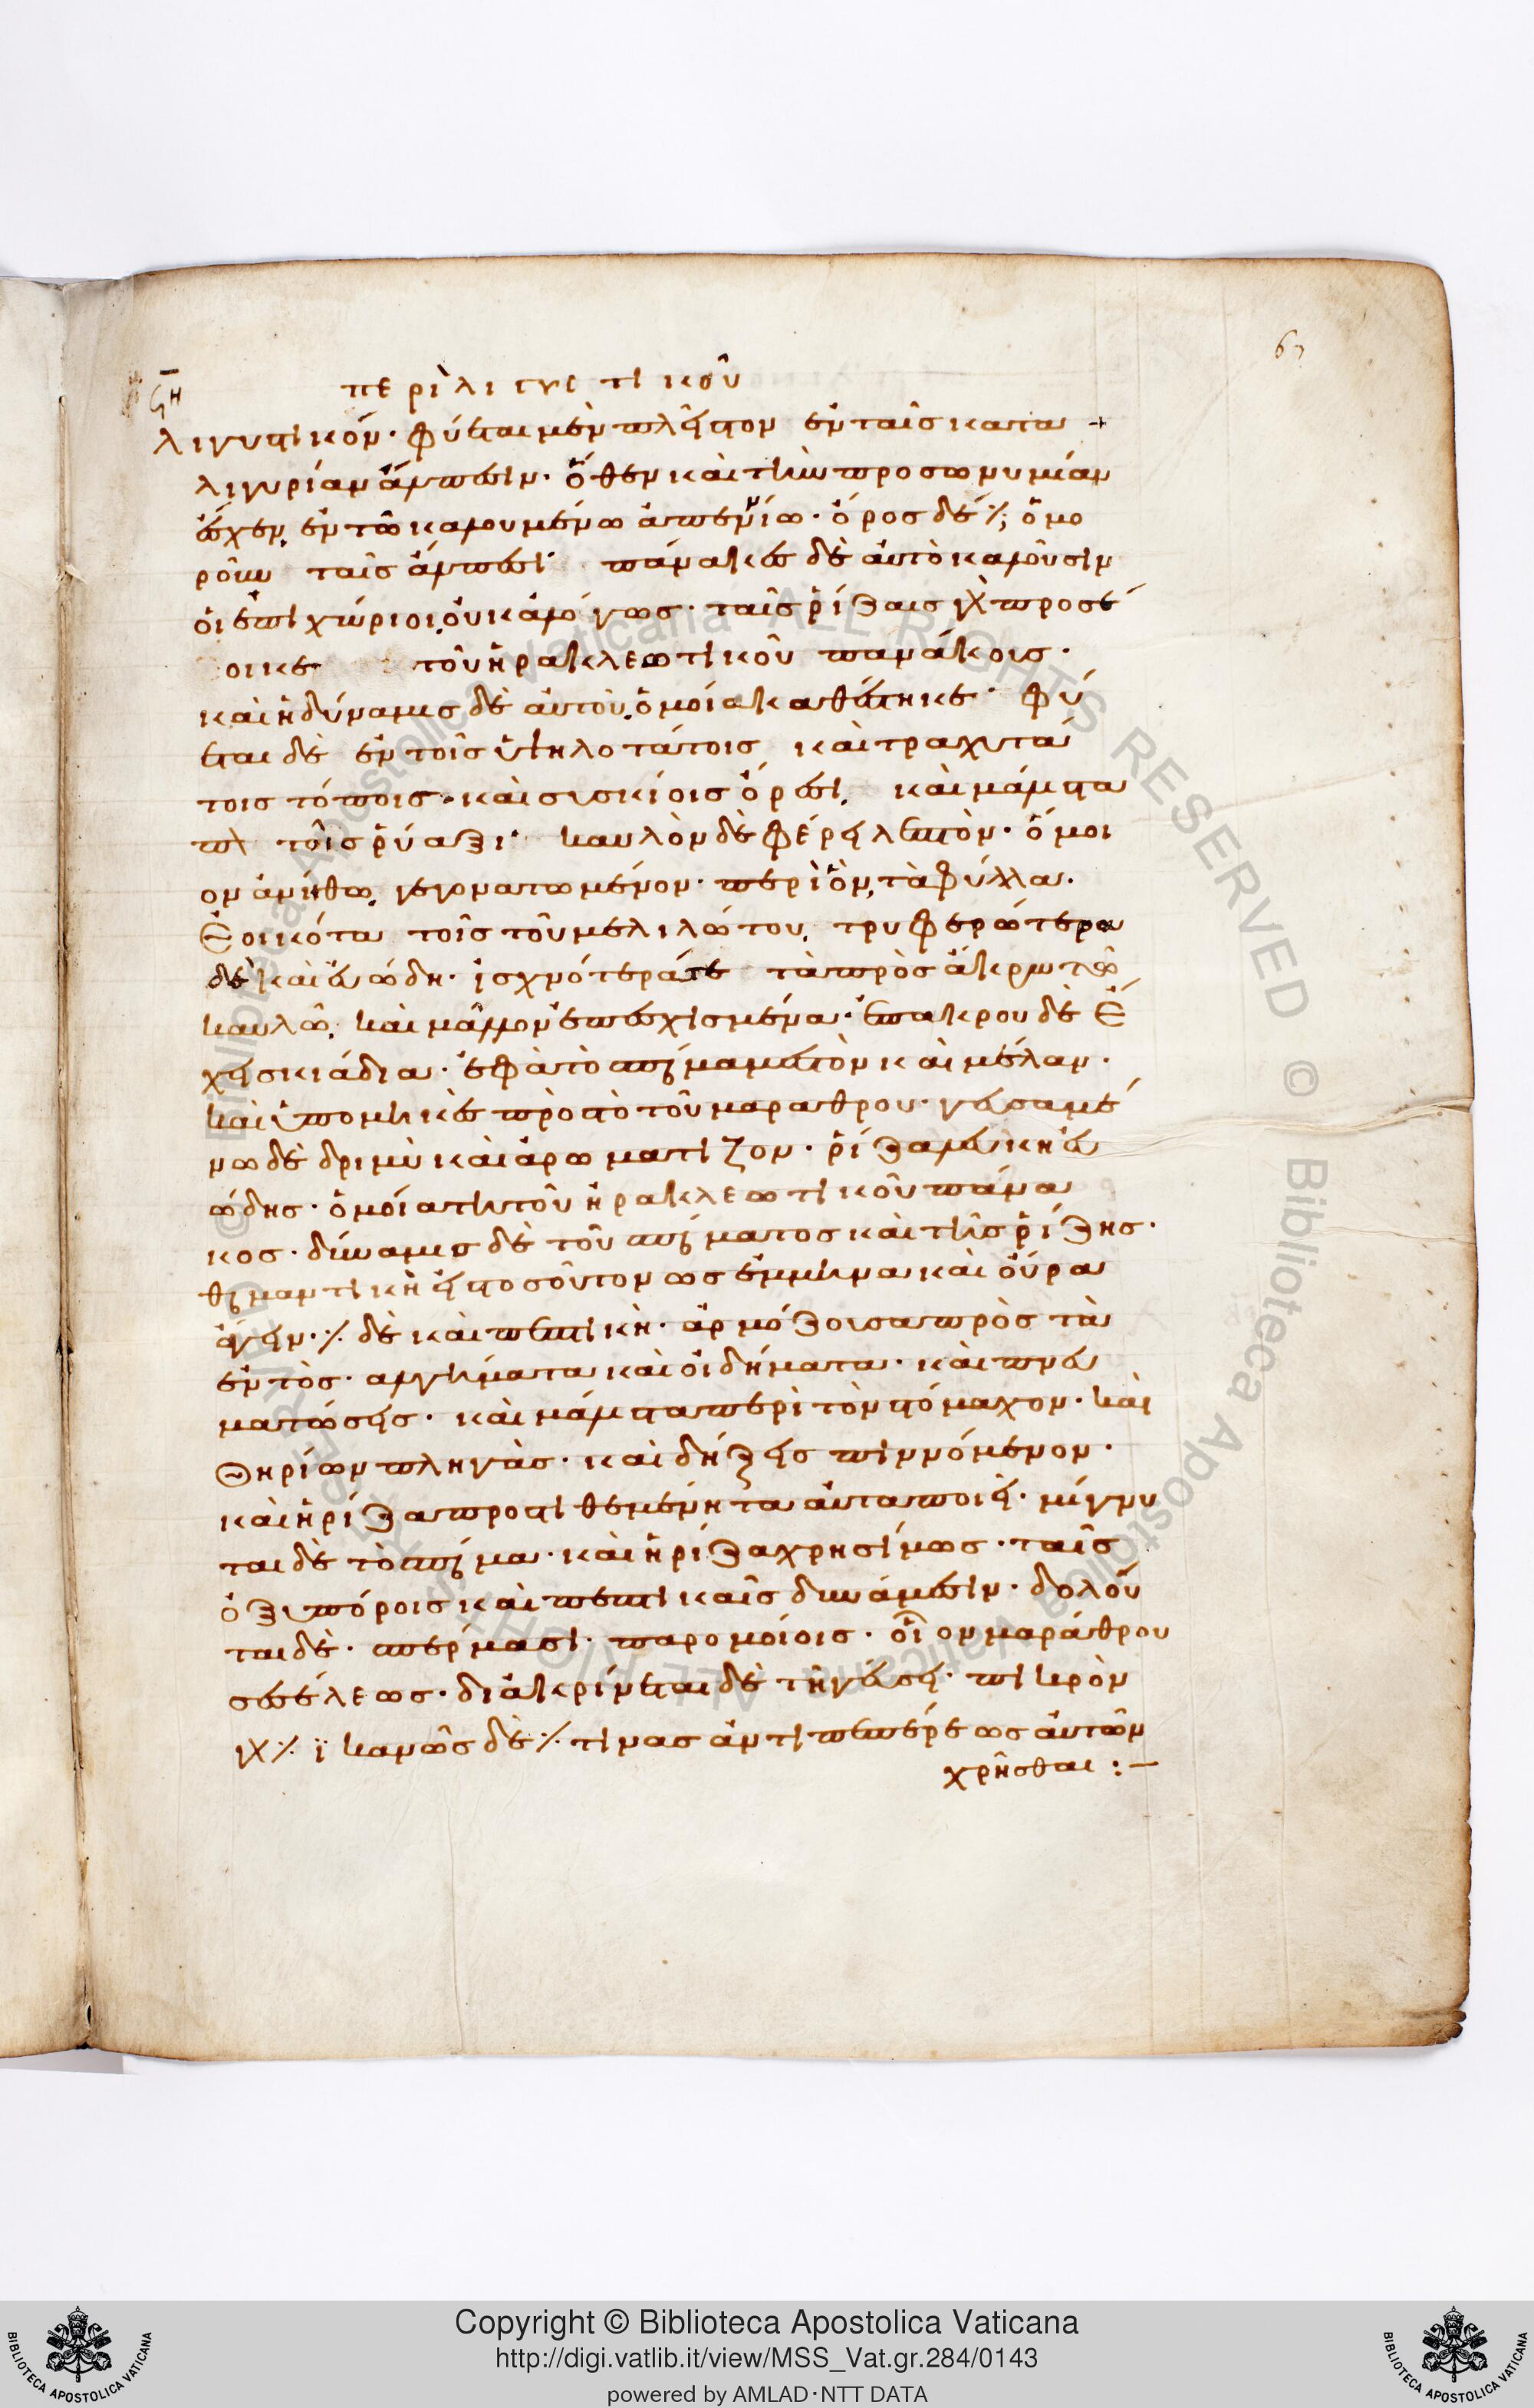 67
ϛη
περὶ λιγυστικοῦ
λιγυστικόν· φύεται μὲν πλεῖστον ἐν ταῖς κατα
λιγυρίαν ἄλπεσιν· ὅθεν καὶ τὴν προσωνυμίαν
ἔσχεν, ἐν τῶ καλουμένω ἀπεννίω· ὄρος δέ ÷, ὁμο
ροῦν ταῖς ἄλπεσι· πάνακες δὲ αὐτὸ καλοῦσιν
οἱ ἐπιχώριοι, οὐκ ἀλόγως· ταῖς ῥίζαις γὰρ προσέ
οικε τοῦ ἡρακλεωτικοῦ πανάκους·
καὶ ἡ δύναμις δὲ αὐτοῦ, ὁμοία καθέστηκε· φύ
εται δὲ ἐν τοῖς ὑψηλοτάτοις καὶ τραχυτά
τοις τόποις· καὶ συσκίοις ὄρεσι, καὶ μάλιστα
π̀ τοῖς ῥύαξι· καυλὸν δὲ φέρει λεπτὸν· ὅμοι
ον ἀνήθω, γεγονατωμένον· περὶ ὃν, τὰ φύλλα·
ἐοικότα τοῖς τοῦ μελιλώτου, τρυφερώτερα
δὲ καὶ εὐώδη· ἰσχνότερά τε τὰ πρὸς ἄκρω τῶ
καυλῶ, καὶ μᾶλλον ἐπεσχισμένα· ἐπ ακρου δὲ ἔ
χει σκιάδια· ἐφ ὰ τὸ σπέρμα μεστὸν καὶ μέλαν·
καὶ ὑπομηκὲς πρὸς τὸ τοῦ μαραθρου· γευσαμέ
νω δὲ δριμὺ καὶ ἀρωματίζον· ῥίζα λευκὴ εὐ
ώδης· ὁμοία τῆ τοῦ ἡρακλεωτικοῦ πάνα
κος· δύναμις δὲ τοῦ σπέρματος καὶ τῆς ῥίζης·
θερμαντικὴ εἰς τοσοῦτον ως ἔμμηνα καὶ οὖρα
ἄγειν· ÷ δὲ καὶ πεπτικὴ· ἁρμόζουσα πρὸς τὰ
ἐντὸς· αλγήματα καὶ οἰδήματα· καὶ πνευ
ματώσεις· καὶ μάλιστα περὶ τὸν στόμαχον· καὶ
θηρίων πληγὰς· καὶ δήξεις πινόμενον·
καὶ ἡ ρίζα προστιθεμένη τα αὐτα ποιεῖ· μίγνυ
ται δὲ τὸ σπέρμα· καὶ ἡ ρίζα χρησίμως· ταῖς
ὀξυπόροις καὶ πεπτικαῖς δυνάμεσιν· δολοῦ
ται δὲ· σπέρμασι· παρομοίοις· οἷον μαράθρου
σεσέλεως· διακρίνεται δὲ τῆ γεύσει· πικρὸν
γὰρ ÷ ϊκανῶς δὲ ÷ τινας ἀντι πεπέρεως αὐτῶν
χρῆσθαι :—
Copyright © Biblioteca Apostolica Vaticana
http://digi.vatlib.it/view/MSS_Vat.gr.284/0143
powered by AMLAD·NTT DATA